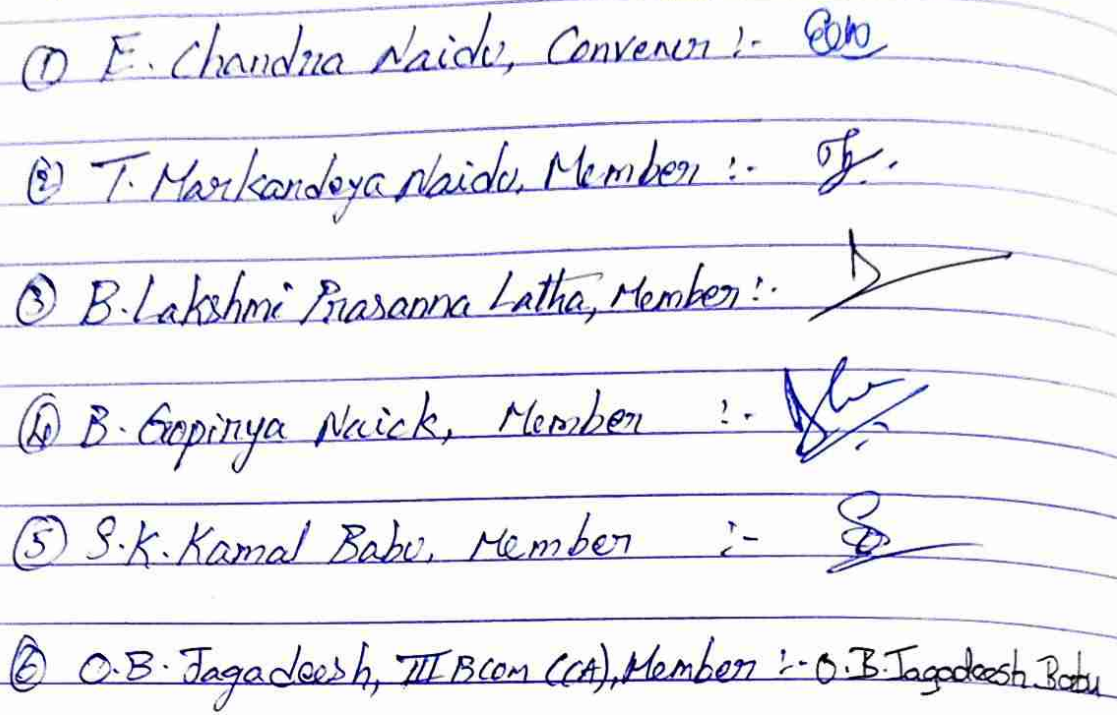 ① E. Chandra Naidu, Convenor :-
② T. Markandeya Naidu, Member :-
③ B. Lakshmi Prasanna Latha, Member :-
④ B. Gopinya Naick, Member :-
⑤ S.K. Kamal Babu, Member :-
⑥ O.B. Jagadeesh, III BCom (CA), Member :- O.B. Jagadeesh Babu